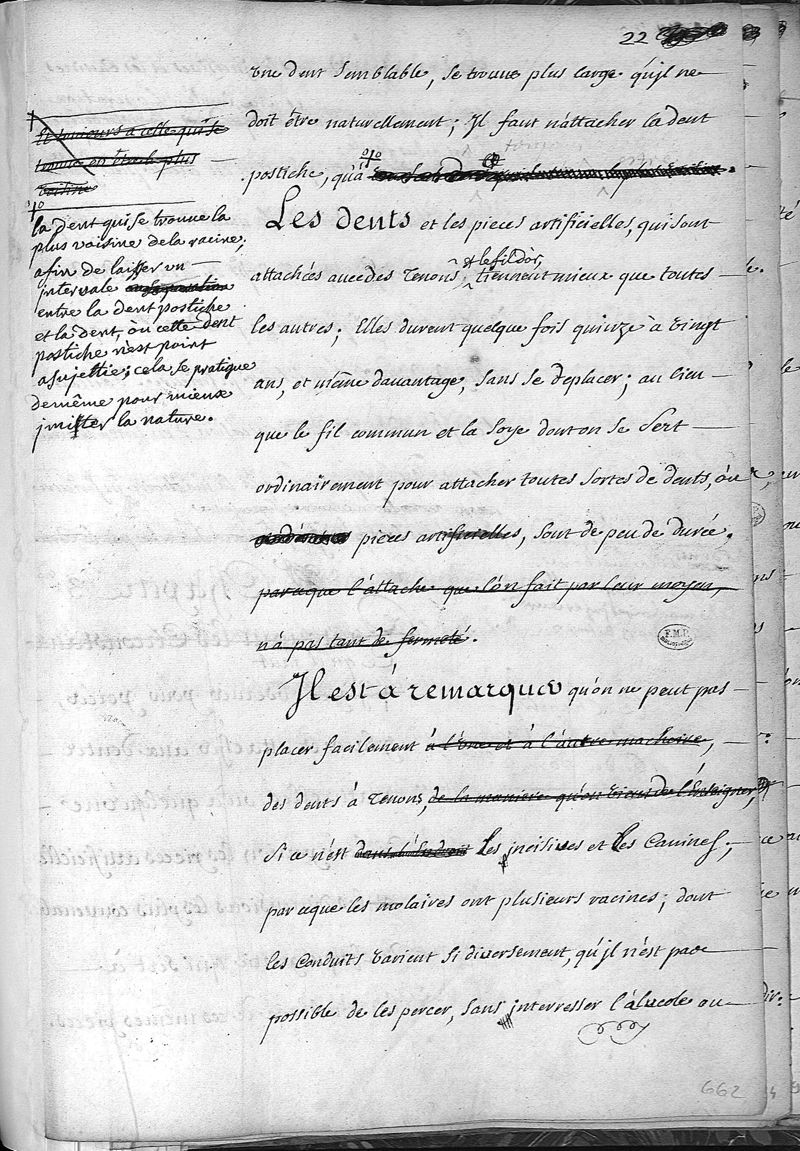 22
une dent semblable, se trouve plus large qu'jl ne
doit être naturellement; Jl faut n'attacher la dent
postiche, qu'à
Les dents et les pieces artificielles, qui sont
attachées avec des Tenons, & le fil d'or, tiennent mieux que toutes
les autres; Elles durent quelque fois quinze à vingt
ans, et même davantage, sans se deplacer; au lieu
que le fil commun et la soye dont on se sert
ordinairement pour attacher toutes sortes de dents, ou
pieces artificielles, sont de peu de durée.
parceque l'attache que l'on fait par leur moyen,
n'à pas tant de fermeté.
Jl est à remarquer qu'on ne peut pas
placer facilement à l'une et à l'autre machoire,
des dents à Tenons, de la maniere qu'on vient de l'Enseigner,
si ce n'est les jncisives et les Canines,
parceque les molaires ont plusieurs racines; dont
les Conduits varient si diversement, qu'jl n'est pas
possible de les percer, sans jnterresser l'alveole ou
et toujours a celle qui se
trouve en être la plus
voisine
la dent qui se trouve la
plus voisine de la racine,
afin de laisser un
jntervale
entre la dent postiche
et la dent, où cette dent
postiche n'est point
asujettie; cela se pratique
de même pour mieux
jmitter la nature.
F.M.P.
662